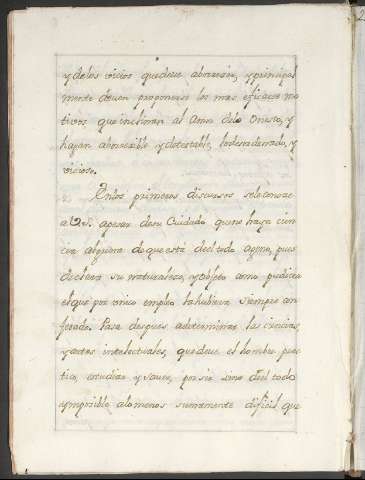 y delos vicios que deve aborrecer, y principal
mente devan proponerse los mas eficaces mo
tivos que inclinan al Amor delo Onesto, y
hagan aborrecible y detestable, lo desordenado, y
vicioso.
Enlos primeros discursos se le conoce
a V.S. apesar de su Cuidado que no haya cien
cia alguna de que está del todo ageno, pues
declara su naturaleza, y objeto como pudiera
el que por unico empleo la hubiera siempre
Pasa despues a determinar las ciencias
y artes intelectuales, que deve el hombre
estudiar y saver, por ser sino del todo
ympossible alomenos sumamente dificil que